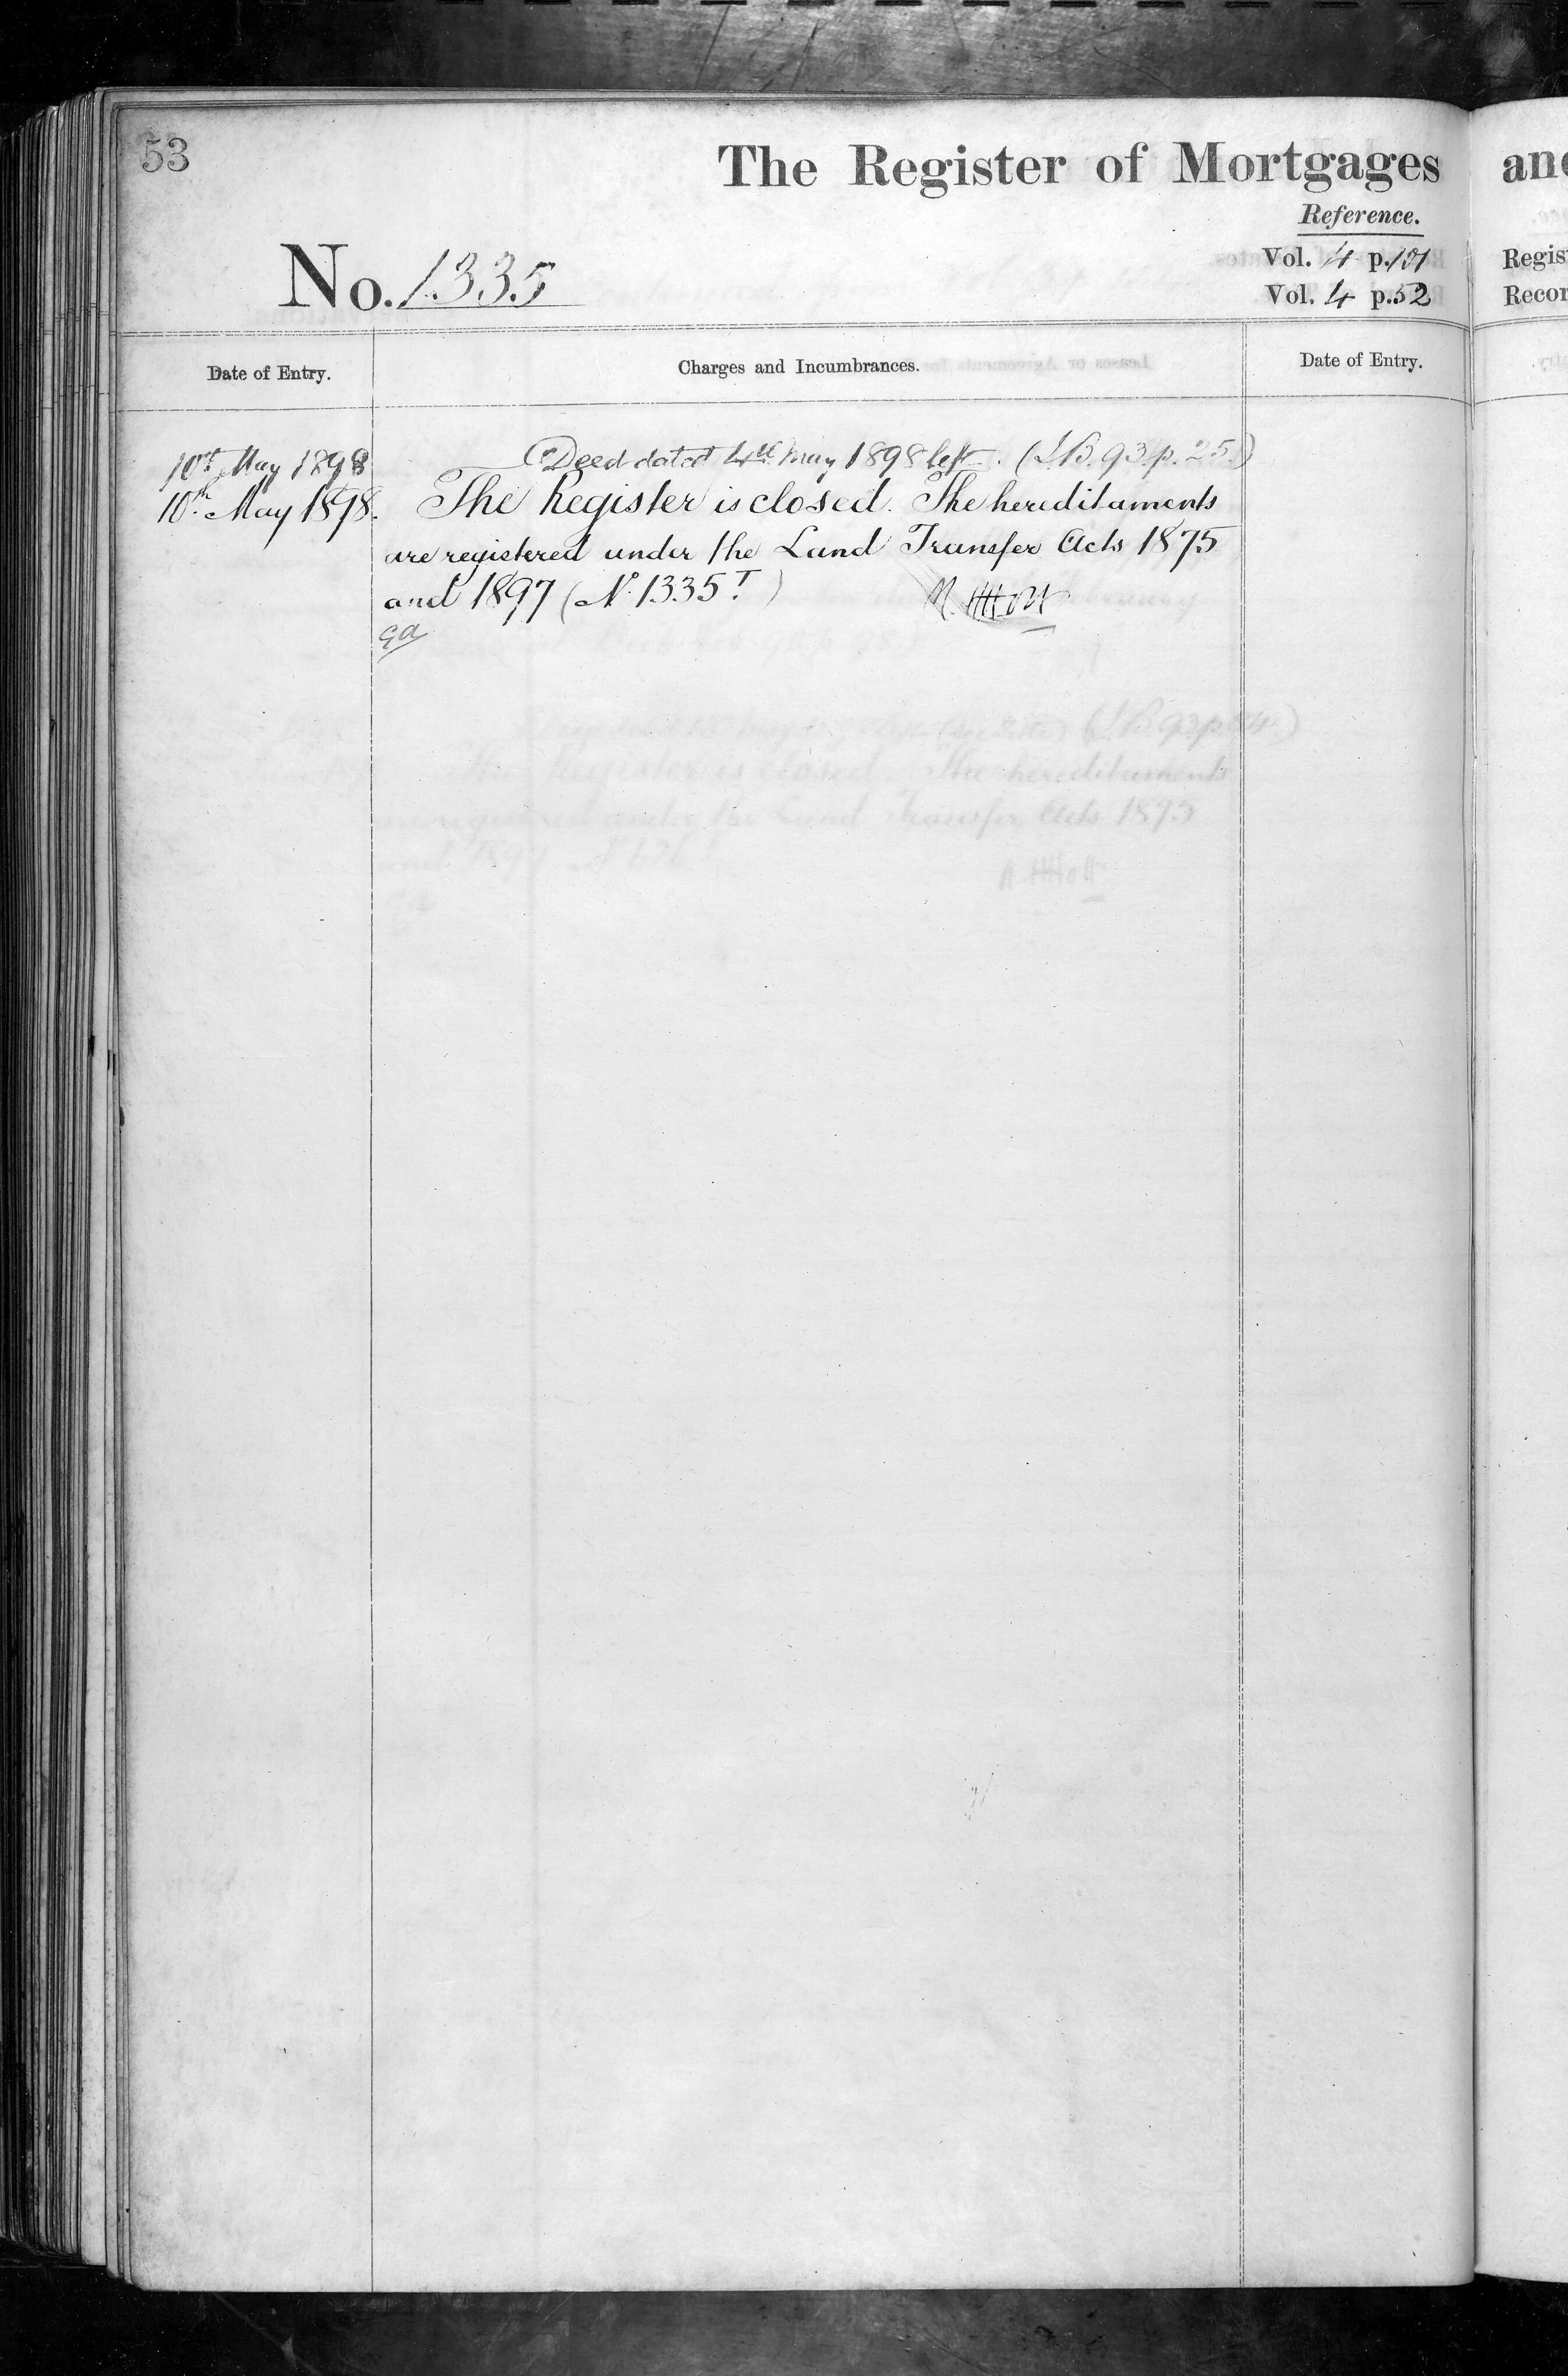 53
The Register of Mortgages
Reference.
No. 1335
Vol. 4 p. 101
Vol. 4 p. 52
Regis
Recor
Date of Entry.
Charges and Incumbrances.
Date of Entry.
10th May 1898 Deed dated 4th May 1898 left. (I.B. 93. p. 25.)
10th May 1898. The Register is closed. The hereditaments
are registered under the Land Transfer Acts 1875
and 1897 (No. 1335T)